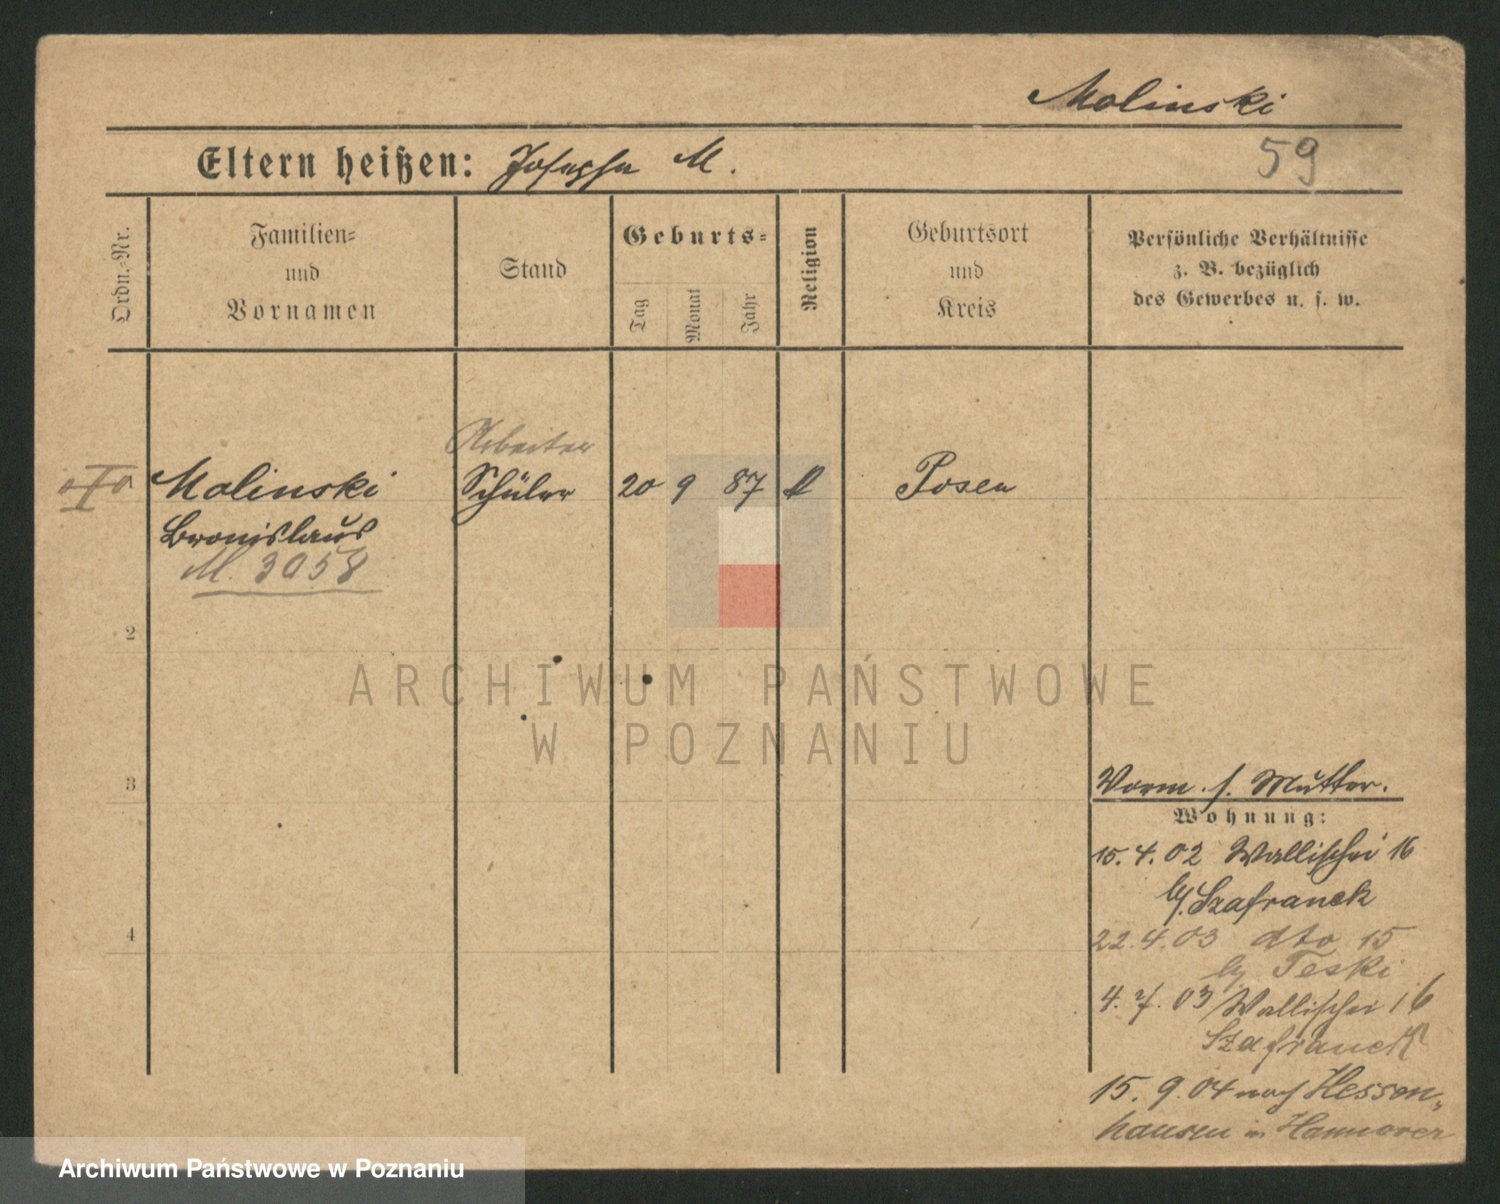 Molinski
Eltern heißen: Josepha M.
59
Ordn.-Nr.
Familien-
und
Vornamen
Stand
Geburts-
Tag
Monat
Jahr
Religion
Geburtsort
und
Kreis
Persönliche Verhältnisse
z. B. bezüglich
des Gewerbes u. s. w.
Arbeiter
Molinski Schüler 20 9 87 Posen
Bronislaus
M. 3058
2
3
4
Vorm. s. Mutter.
Wohnung:
15. 4. 02 Wallischei 16
b/. Szafranek
22. 4. 03 dto 15
b/ Teski
4. 7. 03 Wallischei 16
Szafranek
15. 9. 04 nach Hessen-
hausen in Hannover
ARCHIWUM PAŃSTWOWE
W POZNANIU
Archiwum Państwowe w Poznaniu